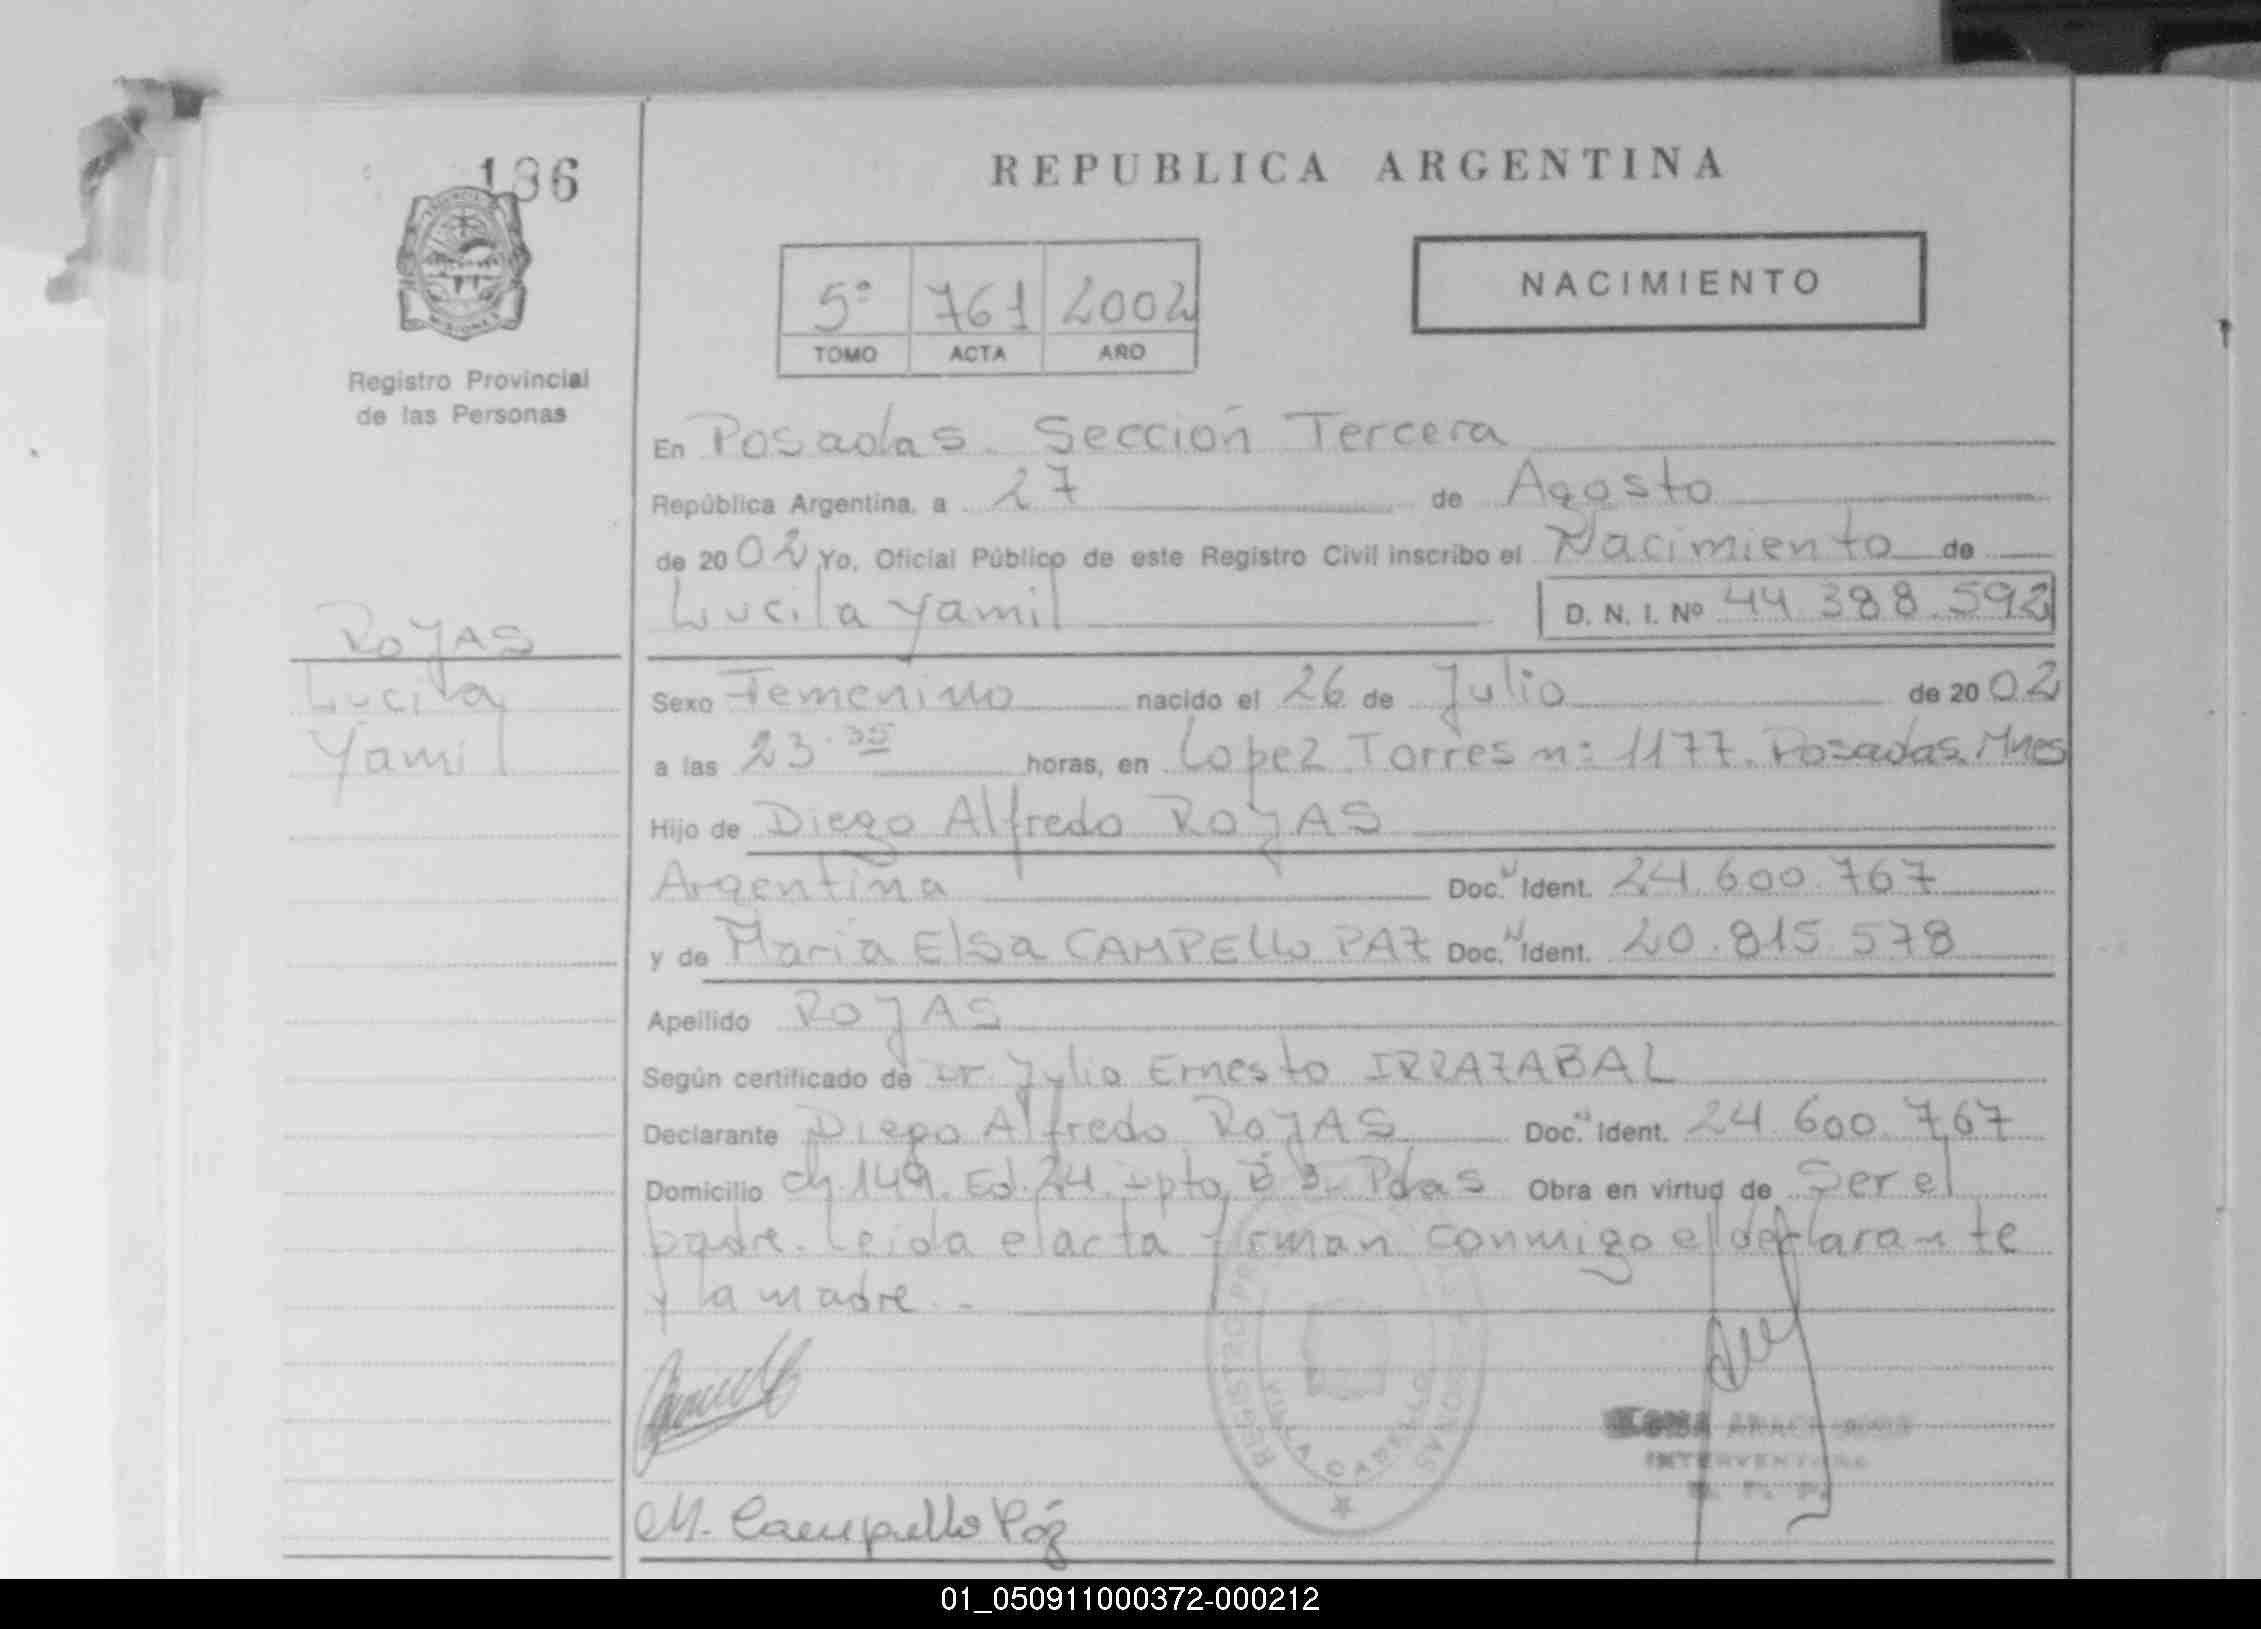 136
REPUBLICA ARGENTINA
NACIMIENTO
5º 761 2002
TOMO ACTA AÑO
Registro Provincial
de las Personas
En Posadas. Sección Tercera
República Argentina, a 27 de Agosto
de 2002 Yo, Oficial Público de este Registro Civil inscribo el Nacimiento de
Lucila Yamil D. N. I. Nº 44.388.592
ROJAS
Lucila
Yamil
Sexo Femenino nacido el 26 de Julio de 2002
a las 23.35 horas, en Lopez Torres nº 1177. Posadas. Mnes
Hijo de Diego Alfredo ROJAS
Argentina Doc. Ident. 24.600.767
y de Maria Elsa CAMPELLO PAZ Doc. Ident. 20.815.578
Apellido ROJAS
Según certificado de Dr. Julio Ernesto IRRAZABAL
Declarante Diego Alfredo ROJAS Doc. Ident. 24.600.767
Domicilio Ch. 149. Ed. 24. Dpto. Pdas Obra en virtud de Ser el
padre. Leida el acta firman conmigo el declarante
y la madre.-
M. Campello Páz
REGISTRO
VILLA CABELLO
INTERVENTORA
R. P. P.
01_050911000372-000212